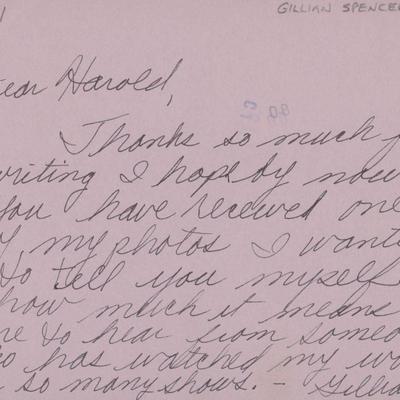 GILLIAN SPENCER
Dear Harold,
Thanks so much f
writing I hope by now
you have received one
of my photos I wante
to tell you myself
how much it means
me to hear from someo
who has watched my wo
so many shows. – Gillia